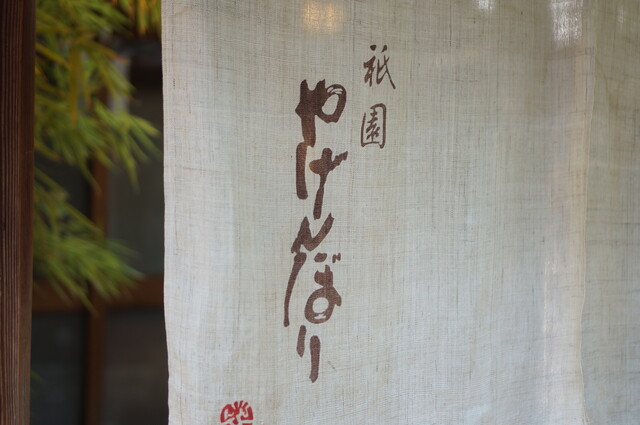 祇園
やげんぼり